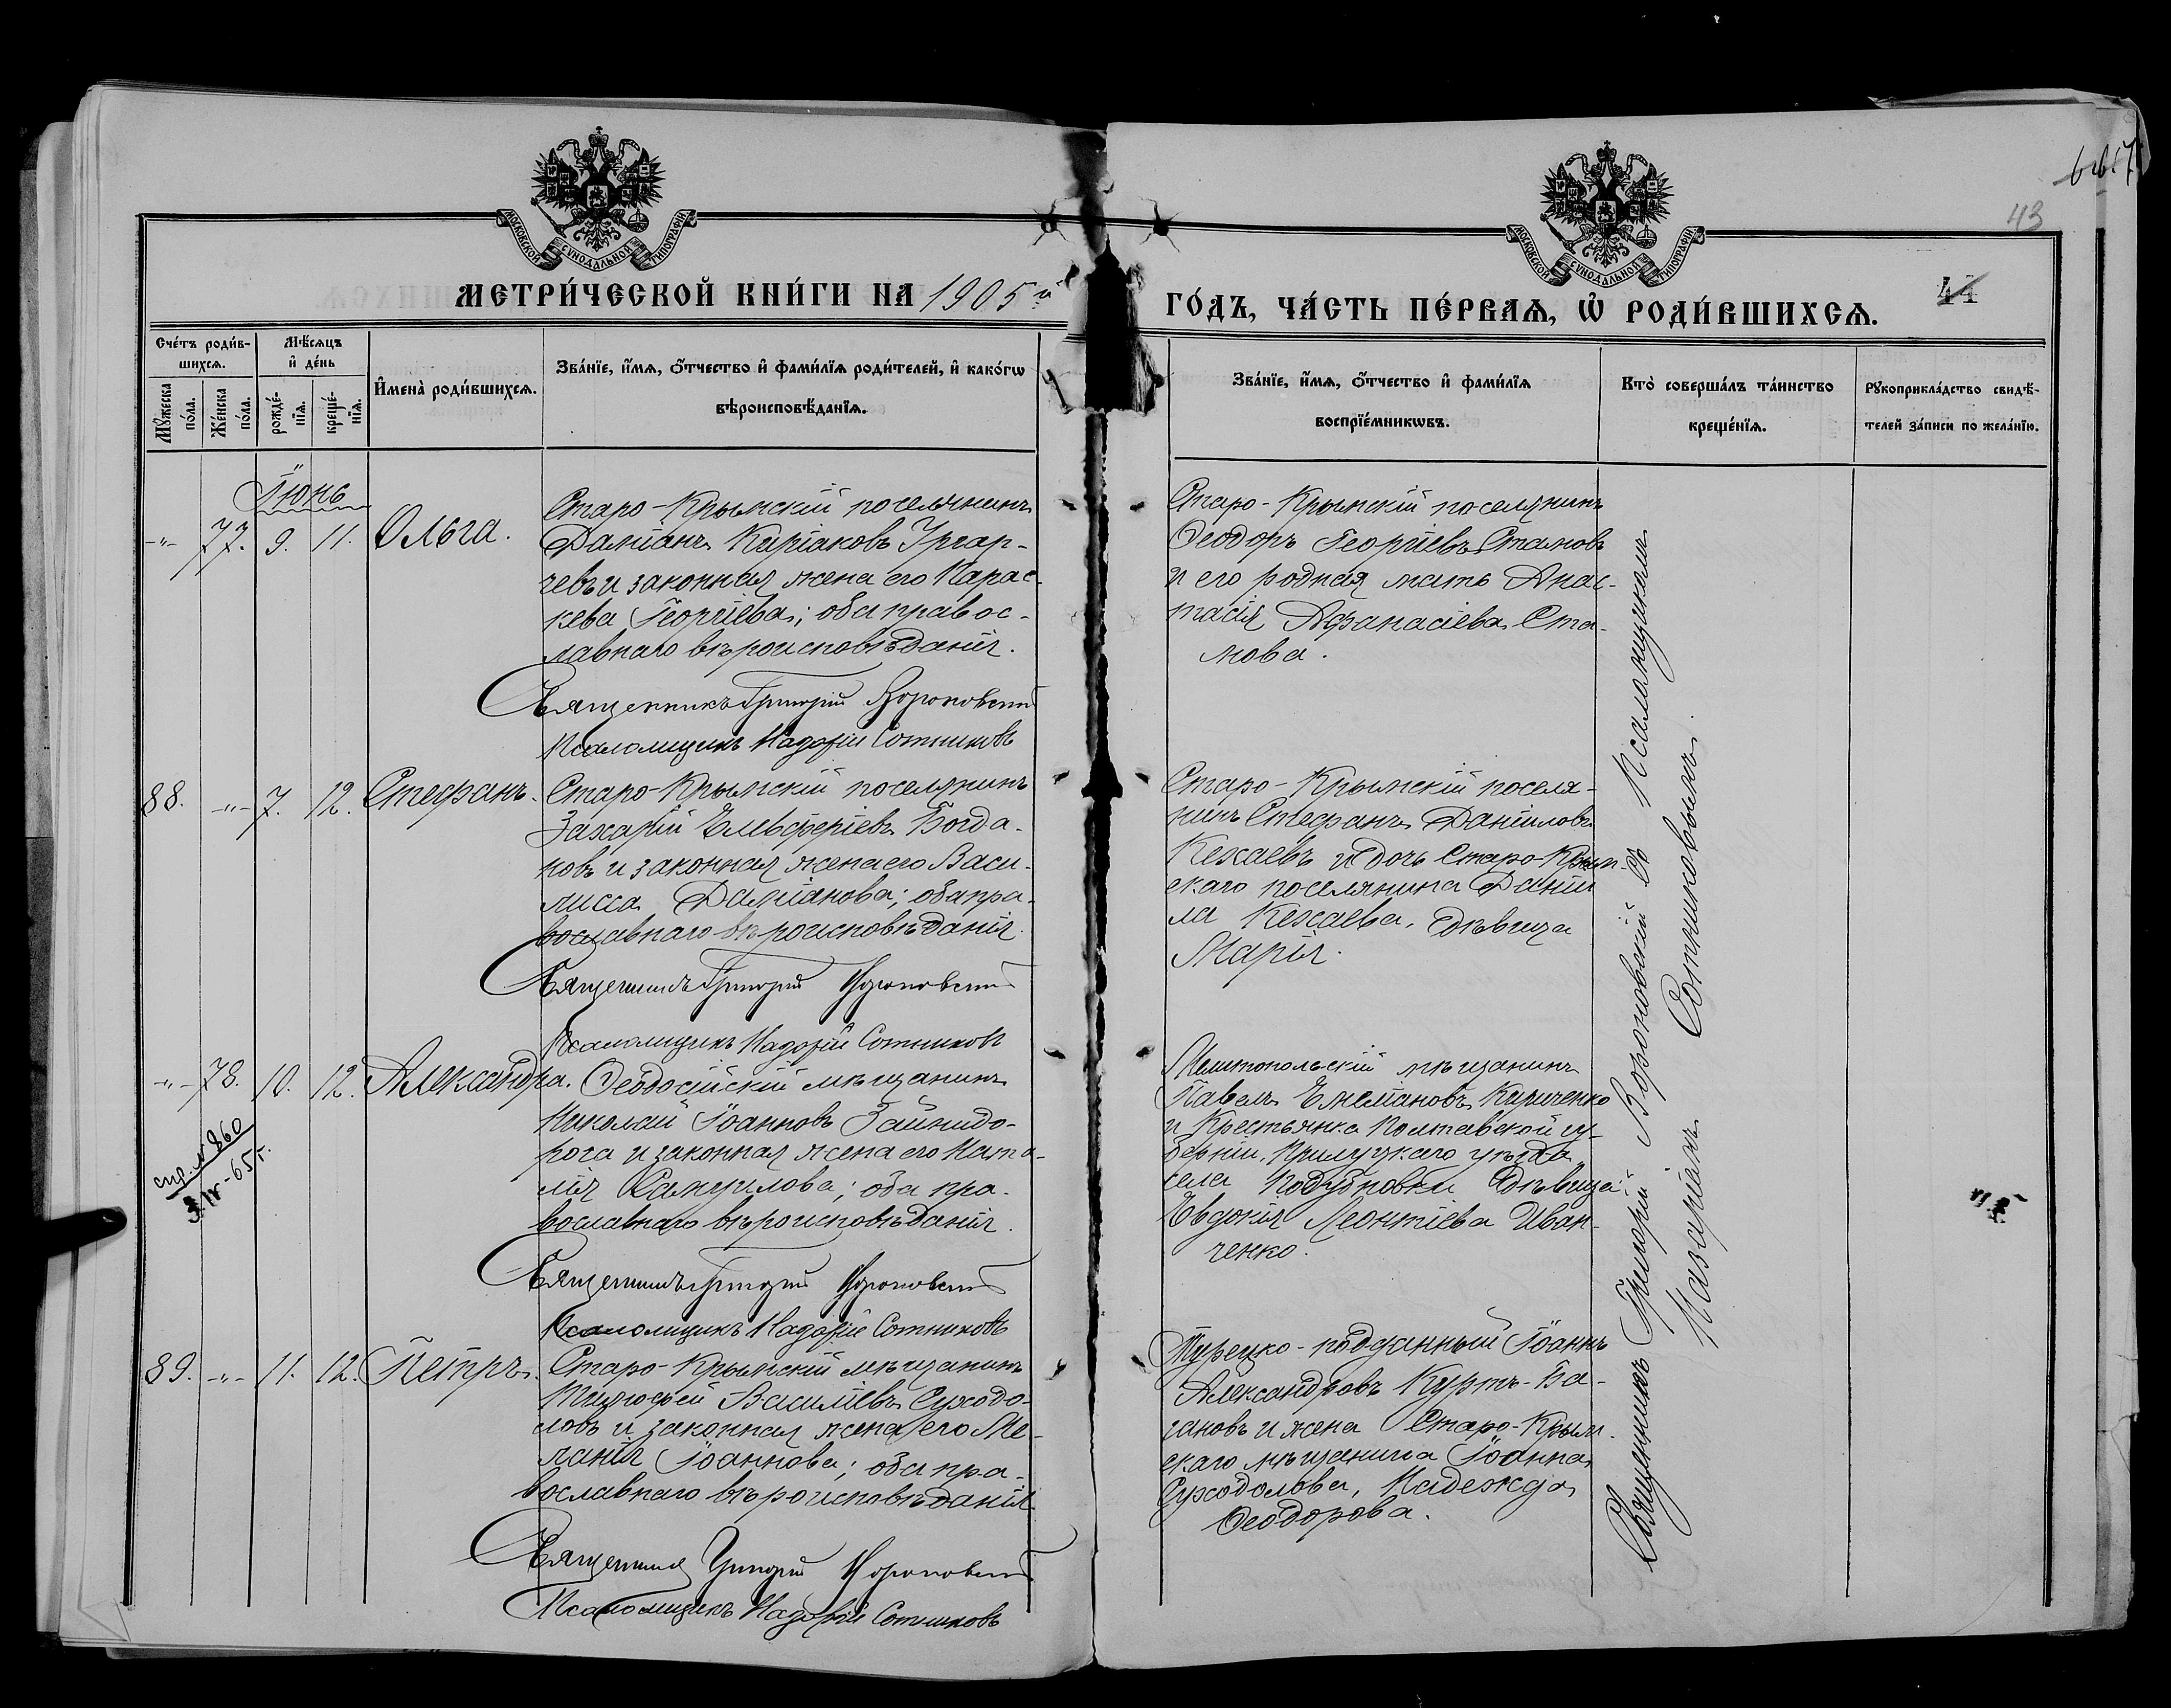 6617
43
44
МОСКОВСКОЙ СѴНОДАЛЬНОЙ ТИПОГРАФІИ
МОСКОВСКОЙ СѴНОДАЛЬНОЙ ТИПОГРАФІИ
МЕТРИ́ЧЕСКОЙ КНИ́ГИ НА 1905й
ГО́ДЪ, ЧА́СТЬ ПЕ́РВАѦ, Ѡ҆ РОДИ́ВШИХСѦ.
Сче́тъ роди́в-
шихсѧ.
Мꙋ́жеска
по́ла.
Же́нска
по́ла.
Мѣ́сѧцъ
и҆ де́нь
рожде́-
нїѧ.
креще́-
нїѧ.
И҆мена̀ роди́вшихсѧ.
Зва́нїе, и҆́мѧ, ѻ҆́тчество и҆ фами́лїѧ роди́телей, и҆ како́гѡ
вѣроисповѣ́данїѧ.
Зва́нїе, и҆́мѧ, ѻ҆́тчество и҆ фами́лїѧ
воспрїе́мникѡвъ.
Кто̀ соверша́лъ та́инство
креще́нїѧ.
Рꙋкоприкла́дство свидѣ́-
телей за́писи по жела́нїю.
Іюнь
-"- 77. 9. 11. Ольга.
Старо-Крымскій поселянинъ
Даміанъ Киріаковъ Ургар-
чевъ и законная жена его Парас-
кева Георгіева; оба правос-
лавнаго вѣроисповѣданія.
Священникъ Григорій Вороновскій
Псаломщикъ Назарій Сотниковъ
Старо-Крымскій поселянинъ
Ѳеодоръ Георгіевъ Стамовъ
и его родная мать Анас-
тасія Аѳанасіева Ста-
мова.
88. -"- 7. 12. Стефанъ.
Старо-Крымскій поселянинъ
Захарій Елевферіевъ Богда-
новъ и законная жена его Васи-
лисса Даміанова; оба пра-
вославнаго вѣроисповѣданія.
Священникъ Григорій Вороновскій
Псаломщикъ Назарій Сотниковъ
Старо-Крымскій поселя-
нинъ Стефанъ Даніиловъ
Кехаевъ и дочь Старо-Крым-
скаго поселянина Даніи
ла Кехаева, дѣвица
Марія.
-"- 78. 10. 12. Александра.
спр. №860
IV-65г.
Ѳеодосійскій мѣщанинъ
Николай Іоанновъ Зайнидо-
рога и законная жена его Ната-
лія Самуилова; оба пра-
вославнаго вѣроисповѣданія.
Священникъ Григорій Вороновскій
Псаломщикъ Назарій Сотниковъ
Мелитопольскій мѣщанинъ
Павелъ Емеліановъ Кириченко
и крестьянка Полтавской гу-
берніи, Прилуцкаго уѣзда
села Поддубновки дѣвица
Евдокія Леонтіева Иван-
ченко.
89. -"- 11. 12. Петръ.
Старо-Крымскій мѣщанинъ
Тимоѳей Василіевъ Суходо-
ловъ и законная жена его Ме-
ланія Іоаннова; оба пра-
вославнаго вѣроисповѣданія.
Священникъ Григорій Вороновскій
Псаломщикъ Назарій Сотниковъ
Турецко-подданный Іоаннъ
Александровъ Куртъ-Ба-
гановъ и жена Старо-Крым-
скаго мѣщанина Іоанна
Суходолова, Надежда
Ѳеодорова.
Священникъ Григорій Вороновскій съ Псаломщикомъ
Назаріемъ Сотниковымъ.